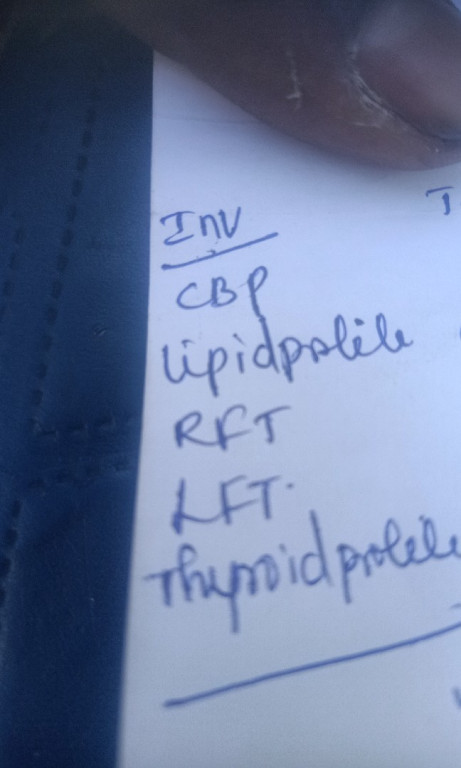 Inv
CBP
Lipid profile
RFT
LFT.
Thyroid profile